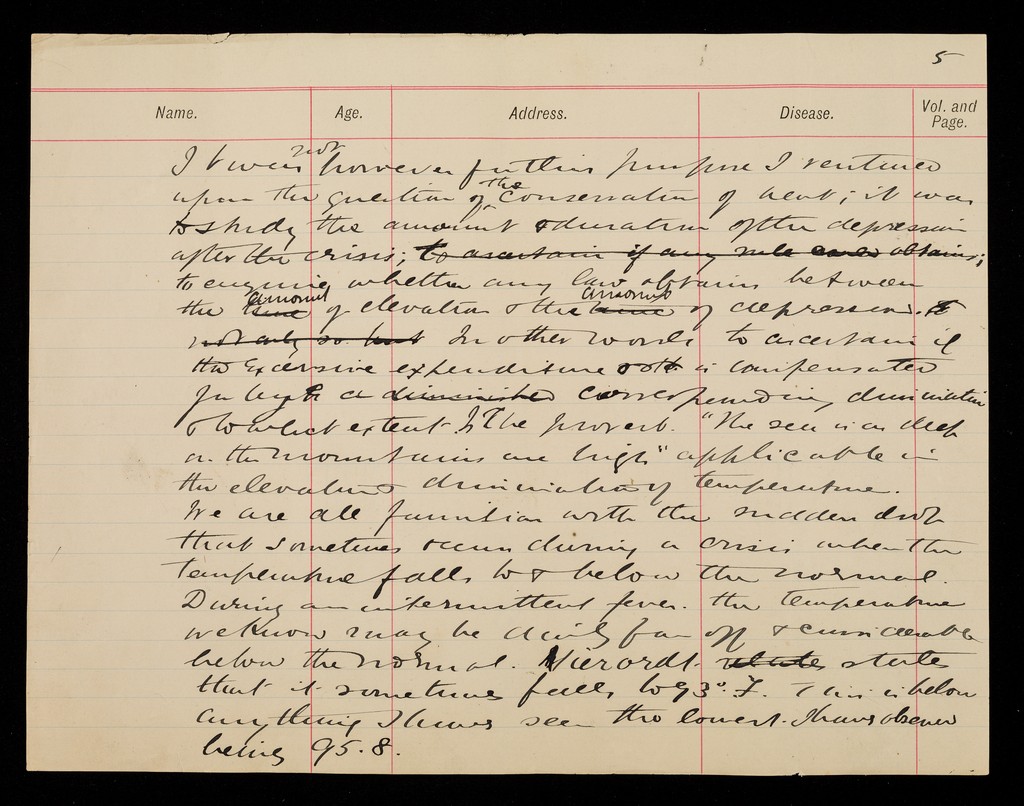 5
Name. Age. Address. Disease. Vol. and Page.
It was not however for this purpose I ventured
upon the question of the conservation of heat; it was
to study the amount & duration of the depression
after the crisis; to ascertain if any rule obtains;
to enquire whether any law obtains between
the amount of elevation & the amount of depression.
not only so but In other words to ascertain if
the excessive expenditure is compensated
for by a diminished corresponding diminution
& to what extent. Is the proverb. "The sea is as deep
as the mountains are high" applicable in
the elevation & diminution of temperature.
We are all familiar with the sudden drop
that sometimes occurs during a crisis when the
temperature falls to & below the normal.
During an intermittent fever. the temperature
we know may be daily far off & considerable
below the normal. Vierordt states
that it sometimes falls to 93°. F. This is below
anything I have seen the lowest I have observed
being 95.8.